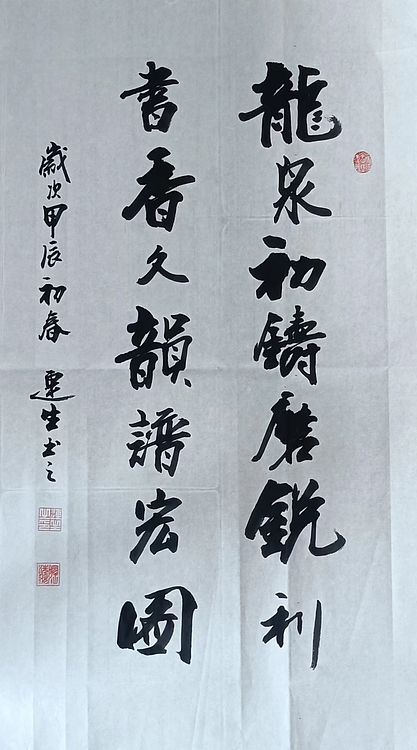 龍泉初鑄磨銳利
書香久韻譜宏圖
歲次甲辰初春 運生书之